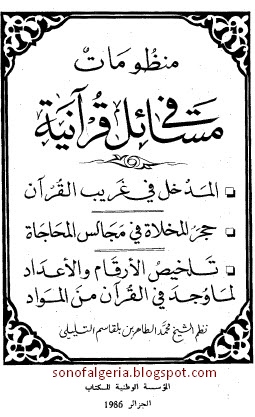 منظومات
في مسائل قرآنية
المدخل في غريب القرآن
حجر المخلاة في مجالس المحاجاة
تلخيص الأرقام والأعداد
لما وجد في القرآن من المواد
نظم الشيخ محمد الطاهر بن بلقاسم التليلي
sonofalgeria.blogspot.com
المؤسسة الوطنية للكتاب
الجزائر 1986